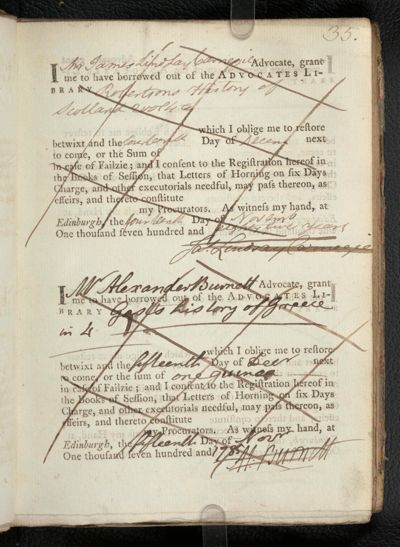 35.
I Mr James Lindsay Carnegie Advocate, grant
me to have borrowed out of the ADVOCATES LI-
BRARY Robertsons History of
Scotland
which I oblige me to restore
betwixt and the Day of next
to come, or the Sum of
in case of Failzie; and I consent to the Registration hereof in
the Books of Session, that Letters of Horning on six Days
Charge, and other executorials needful, may pass thereon, as
effeirs, and thereto constitute
my Procurators. As witness my hand, at
Edinburgh, the Day of Novemb
One thousand seven hundred and
Lindsay Carnegie
I Mr Alexander Burnett Advocate, grant
me to have borrowed out of the ADVOCATES LI-
BRARY history of Greece
in 4
which I oblige me to restore
betwixt and the fifteenth Day of Decr next
to come, or the sum of one guinea
in case of Failzie; and I consent to the Registration hereof in
the Books of Session, that Letters of Horning on six Days
Charge, and other executorials needful, may pass thereon, as
effeirs, and thereto constitute
my Procurators. As witness my hand, at
Edinburgh, the fifteenth Day of Novr
One thousand seven hundred and 1785 Burnett